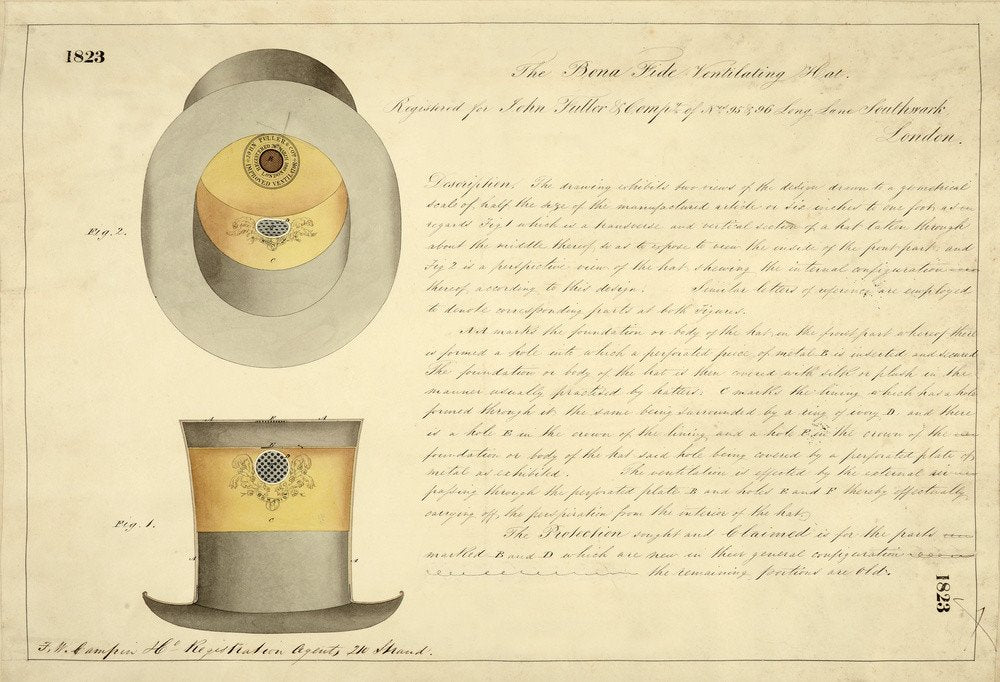 1823
The Bona Fide Ventilating Hat.
Registered for John Fuller & Compy. of Nos. 95 & 96 Long Lane Southwark
London.
Description. The drawing exhibits two views of the design drawn to a geometrical
scale of half the size of the manufactured article or six inches to one foot as
regards Fig 1 which is a transverse and vertical section of a hat taken through
about the middle thereof so as to expose to view the inside of the front part and
Fig 2 is a perspective view of the hat shewing the internal configuration
thereof according to this design. Similar letters of reference are employed
to denote corresponding parts in both Figures.
AA marks the foundation or body of the hat in the front part whereof there
is formed a hole into which a perforated piece of metal B is inserted and secured
The foundation or body of the hat is then covered with silk or plush in the
manner usually practised by hatters: C marks the lining which has a hole
formed through it the same being surrounded by a ring of ivory D. and there
is a hole E in the crown of the lining and a hole F in the crown of the
foundation or body of the hat said hole being covered by a perforated plate of
metal as exhibited. The ventilation is effected by the external air
passing through the perforated plate B and holes E and F thereby effectually
carrying off the perspiration from the interior of the hat.
The Protection sought and Claimed is for the parts
marked B and D which are new in their general configuration
the remaining portions are Old.
Fig. 2.
JOHN FULLER & COY
REGISTERED
LONDON
IMPROVED VENTILATOR
C
A E A
F
C
Fig. 1.
A A
1823
F. W. Campin Registration Agent, 210 Strand.